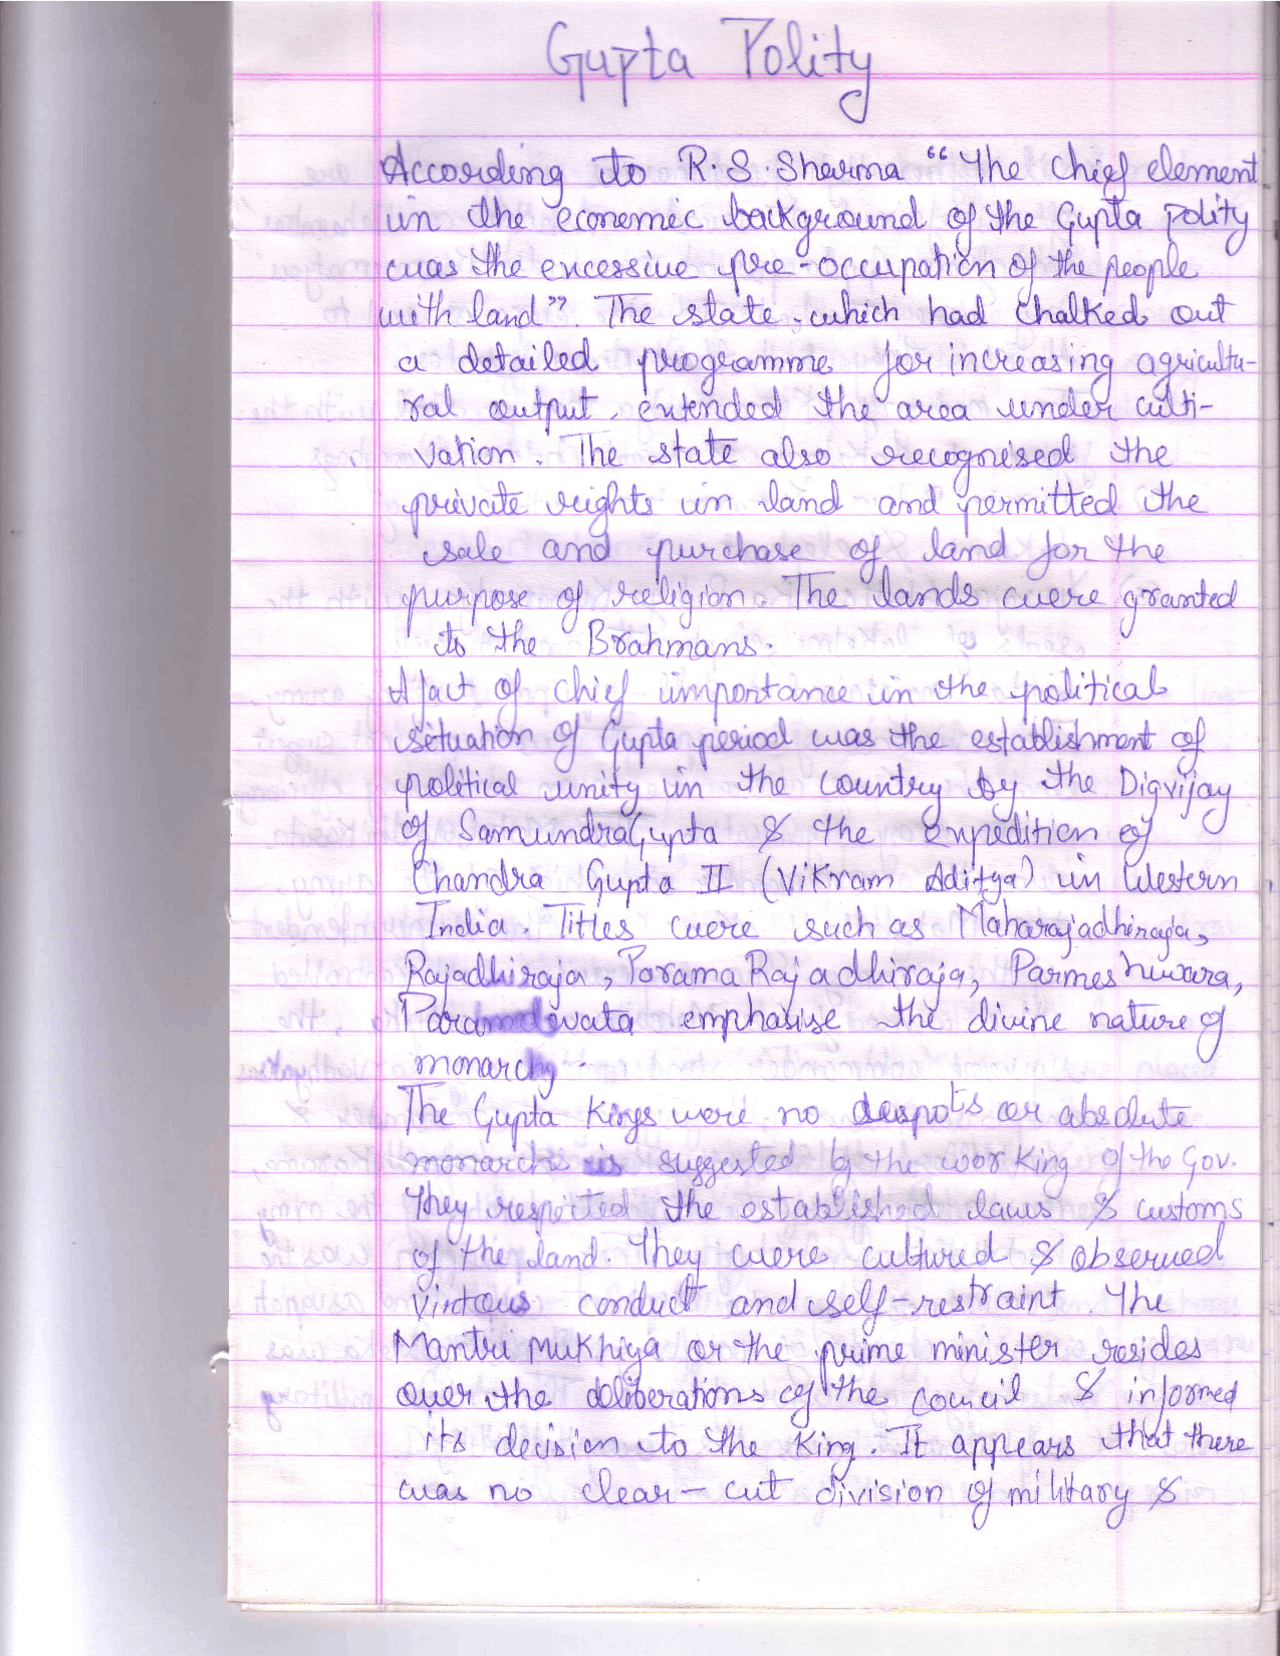 Gupta Polity
According to R.S. Sharma "The chief element
in the economic background of the Gupta polity
was the excessive pre-occupation of the people
with land". The state which had chalked out
a detailed programme for increasing agricultu-
ral output, extended the area under culti-
vation. The state also recognised the
private rights in land and permitted the
sale and purchase of land for the
purpose of religion. The lands were granted
to the Brahmans.
A fact of chief importance in the political
situation of Gupta period was the establishment of
political unity in the country by the Digvijay
of SamundraGupta & the expedition of
Chandra Gupta II (Vikram Aditya) in Western
India. Titles were such as Maharajadhiraja,
Rajadhiraja, Parama Rajadhiraja, Parmeshwara,
Paramdevata emphasise the divine nature of
monarchy.
The Gupta Kings were no despots or absolute
monarchs is suggested by the working of the Gov.
They respected the established laws & customs
of the land. They were cultured & observed
Virtous conduct and self-restraint. The
Mantri Mukhiya or the prime minister resides
over the deliberations of the council & informed
its decision to the King. It appears that there
was no clear-cut division of military &